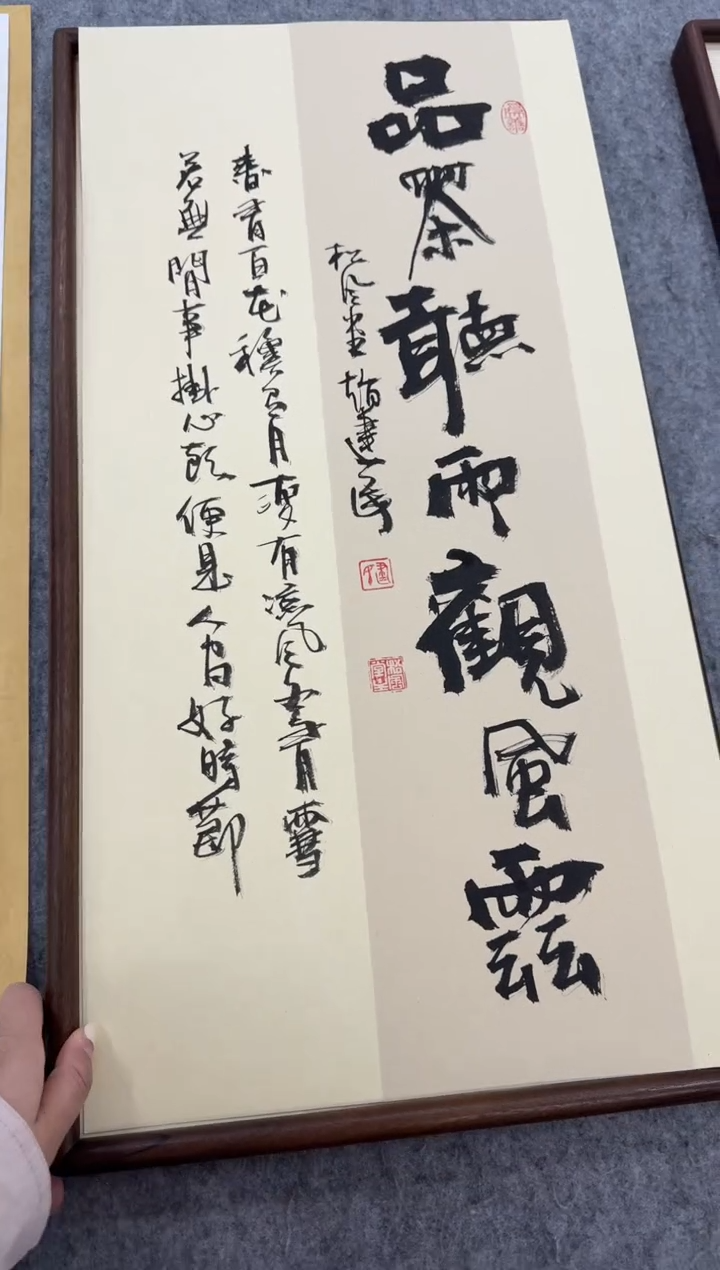 品茶聽雨觀風雲
松风堂 趙建民
春有百花穐有月夏有涼风冬有雪
若無閒事掛心頭便是人间好時節